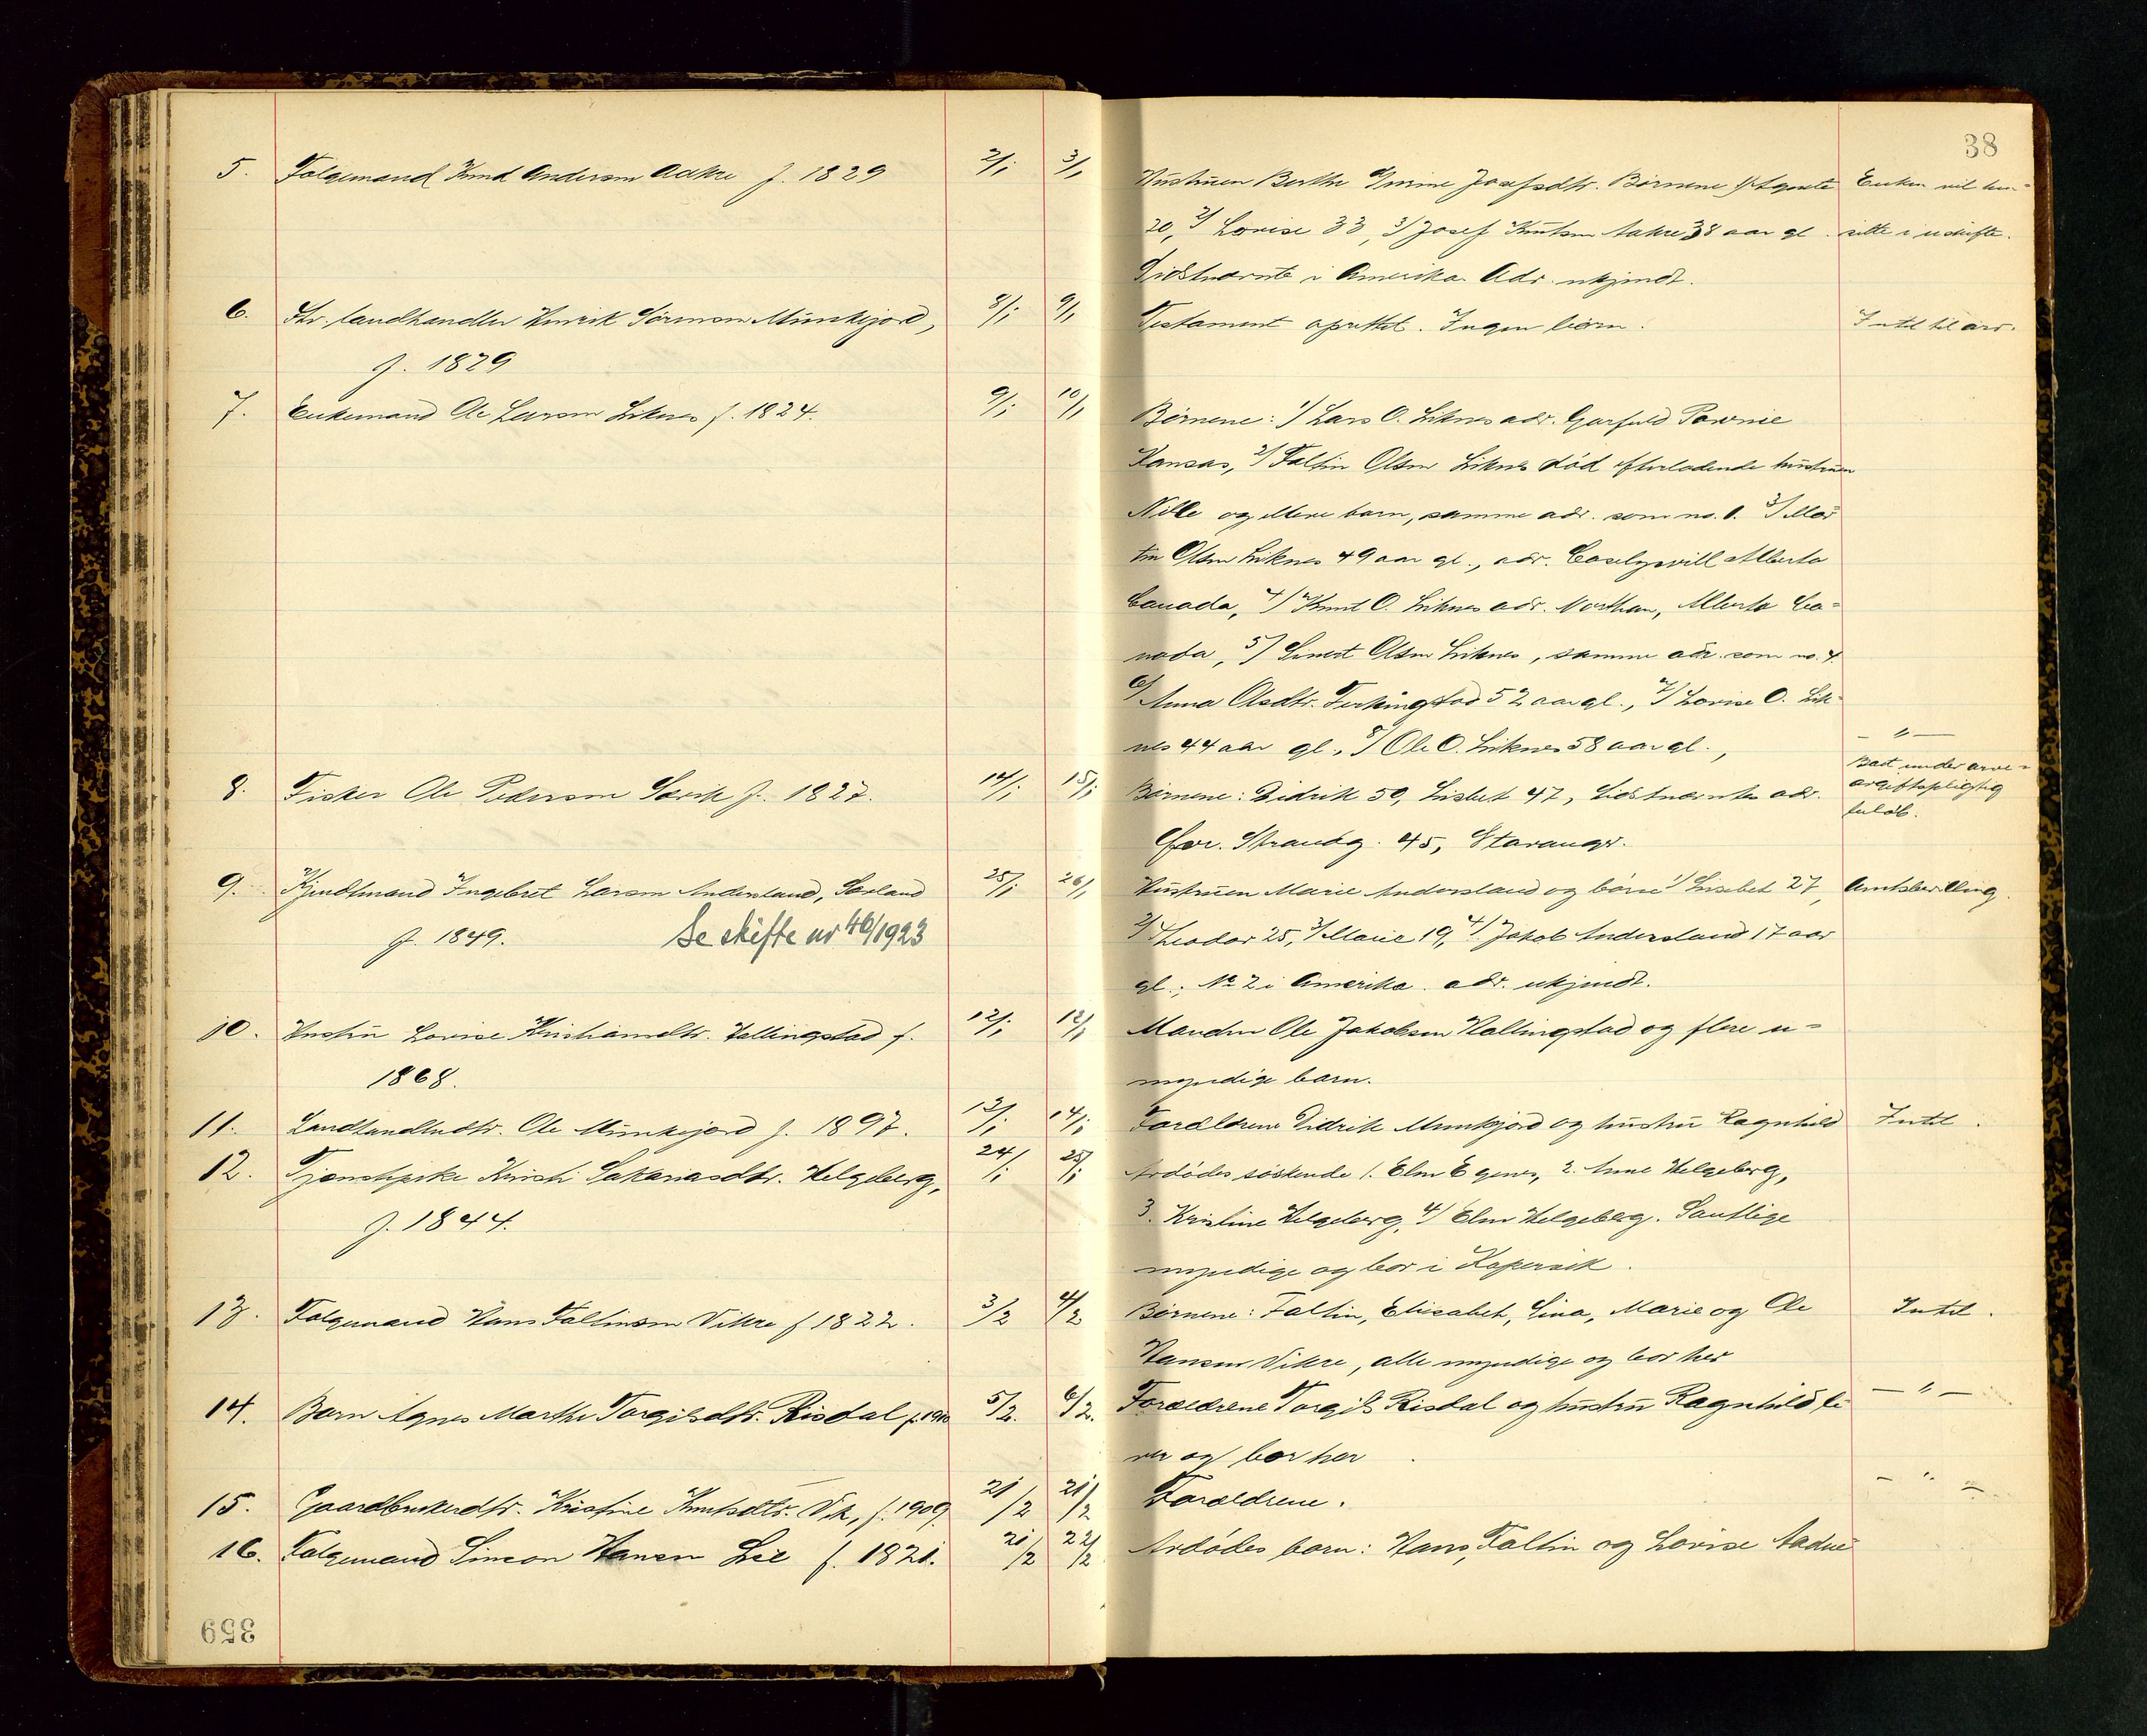 38
5. Folgemand Knud Andersen Aakre f. 1829 2/1 3/1
Hustruen Berthe Josefsdtr. Børnene 1/ Agnete Enken vil hen-
20, 2/ Lovise 33, 3/ Josef Knutsen Aakre 38 aar gl. sitte i uskifte.
Sidstnævnte i Amerika. Adr. ukjendt.
6. Fhv. landhandler Henrik Sørensen Munkejord, 8/1 9/1 Testament oprettet. Ingen børn. Intet til arv.
f. 1829
7. Enkemand Ole Larsen Liknes f. 1824. 9/1 10/1 Børnene: 1/ Lars O. Liknes adr. Garfield Pawnie
Kansas, 2/ Faltin Olsen Liknes død efterladende hustruen
Nille og flere barn, samme adr. som no. 1. 3/ Mar
tin Olsen Liknes 49 aar gl., adr. Alberta
Canada, 4/ Knut O. Liknes adr. Northan, Alberta Ca-
nada, 5/ Sivert Olsen Liknes, samme adr. som no. 4.
6/ Anna Olsdtr. Ferkingstad 52 aar gl., 7/ Lovise O. Lik-
nes 44 aar gl., 8/ Ole O. Liknes 58 aar gl., - " -
8. Fisker Ole Pedersen Sævik f. 1827. 14/1 15/1 Børnene: Didrik 50, Lisbet 47, sidstnævntes adr. Bart under arve-
avgiftspligtig
beløb.
Øvr. Strandg. 45, Stavanger.
9. Kjendtmand Ingebret Larsen Andersland, Sæland 25/1 26/1 Hustruen Marie Andersland og børn 1/ Lisebet 27, Amtsbevilling.
f. 1849. Se skifte nr 46/1923
2/ Theodor 25, 3/ Marie 19, 4/ Jakob Andersland 17 aar
gl.; No 2 i Amerika. adr. ukjendt.
10. Hustru Lovise Kristiansdtr. Hallingstad f. 12/1 12/1 Manden Ole Jakobsen Hallingstad og flere u-
1868.
myndige barn.
11. Landhandlerdtr. Ole Munkejord f. 1897. 13/1 14/1 Forældrene Didrik Munkjord og hustru Ragnhild Intet.
12. Tjenestepike Kirsti Sakariasdtr. Helgeberg, 24/1 25/1 Avdødes søskende 1. Elen Egenes, 2. Anne Helgeberg,
f. 1844.
3. Kristine Helgeberg, 4/ Elen Helgeberg. Samtlige
myndige og bor i Kopervik.
13. Folgemand Hans Faltinsen Vikre f 1822. 3/2 4/2 Børnene: Faltin, Elisabet, Sina, Marie og Ole Intet.
Hansen Vikre, alle myndige og bor her
14. Barn Agnes Marthe Torgilsdtr. Risdal f. 1910 5/2. 6/2. Forældrene Torgils Risdal og hustru Ragnhild le - " -
ver og bor her.
15. Gaardbrukerdtr. Kristine Knutsdtr. Vik, f. 1909. 21/2 21/2 Forældrene. - " -
16. Folgemand Simon Hansen Lie f. 1821. 21/2 22/2 Avdødes barn: Hans, Faltin og Lovise Aadne
359